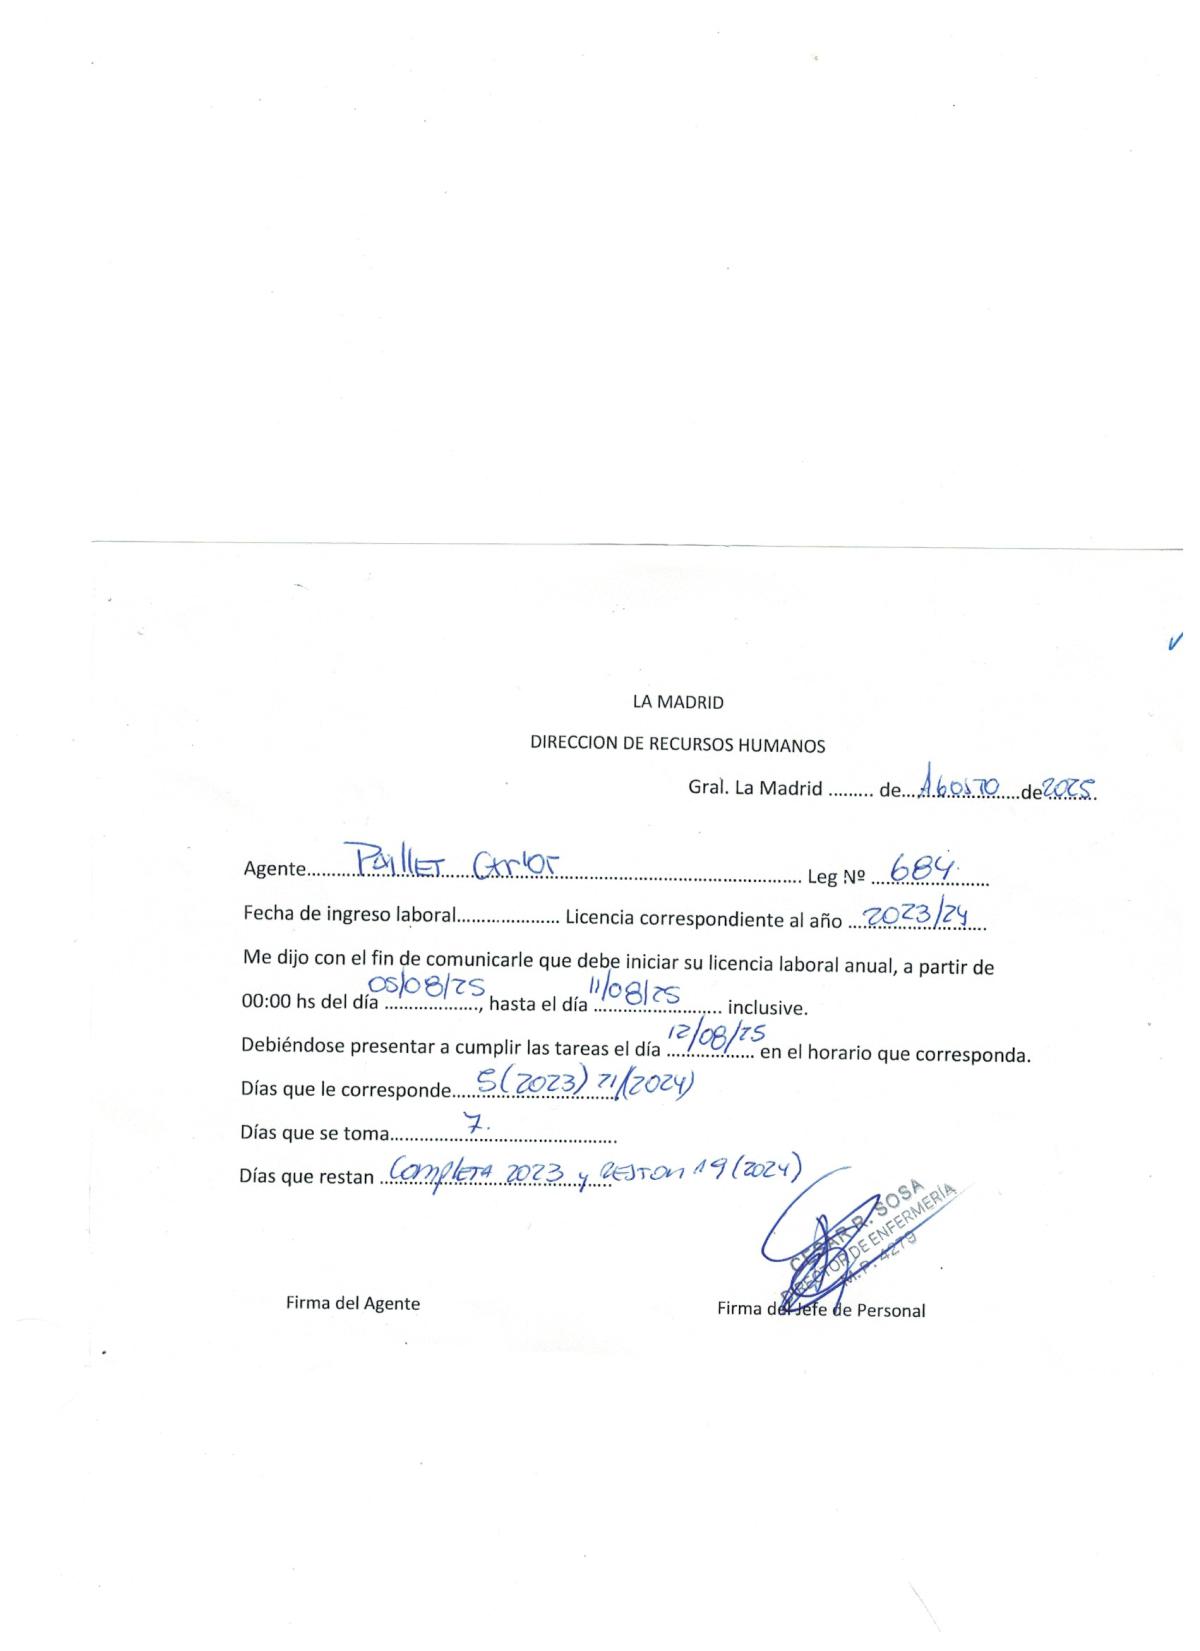 LA MADRID
DIRECCION DE RECURSOS HUMANOS
Gral. La Madrid ......... de...Agosto....de2025.
Agente..........Paillet Carlos.......... Leg Nº ...684.......
Fecha de ingreso laboral.................... Licencia correspondiente al año ...2023/24...
Me dijo con el fin de comunicarle que debe iniciar su licencia laboral anual, a partir de
00:00 hs del día 05/08/25, hasta el día 11/08/25 inclusive.
Debiéndose presentar a cumplir las tareas el día 12/08/25 en el horario que corresponda.
Días que le corresponde....5(2023) 21/(2024)
Días que se toma..........7...........
Días que restan Completa 2023 y restan 19(2024)
CESAR R. SOSA
DIRECTOR DE ENFERMERÍA
M.P. 4279
Firma del Agente
Firma del Jefe de Personal